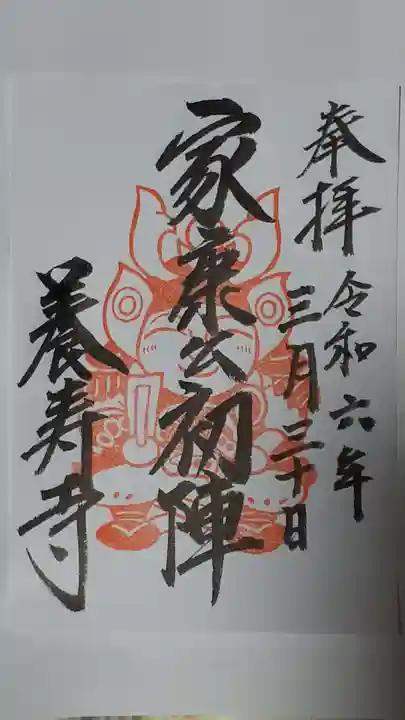 奉拝
令和六年
三月三十日
家康公初陣
養寿寺